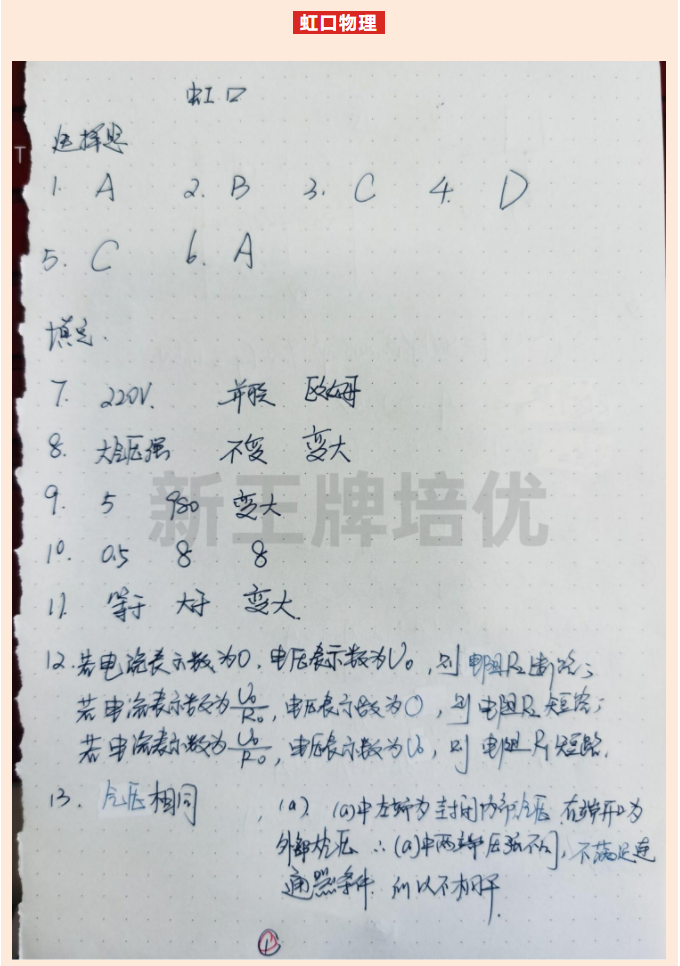 虹口物理
虹口
选择题
1. A 2. B 3. C 4. D
5. C 6. A
填空.
7. 220V. 并联 欧姆
8. 大气压强 不变 变大
9. 5 980 变大
10. 0.5 8 8
11. 等于 大于 变大.
12. 若电流表示数为0, 电压表示数为U₀, 则电阻R₂断路;
若电流表示数为U₀/R₀, 电压表示数为0, 则电阻R₂短路;
若电流表示数为U₀/R₀, 电压表示数为U₀, 则电阻R₁短路.
13. 气压相同, (a). (a)中左端为封闭内部气压 右端开口为
外部大气压 ∴(a)中两端压强不同, 不满足连
通器条件. 所以不相平.
新王牌培优
T